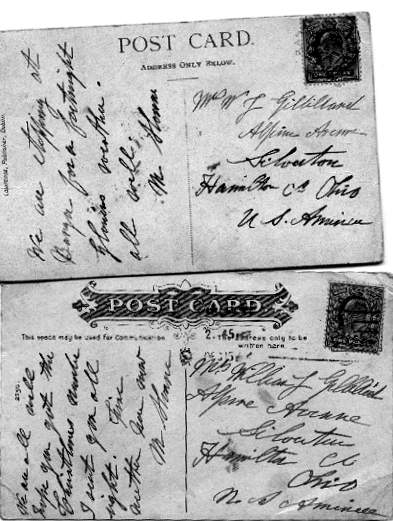 POST CARD.
ADDRESS ONLY BELOW.
We are stopping at
for a fortnight
glorious weather.
all well.
M
Lawrence, Publisher, Dublin.
Mrs W J Gilliland
Alpine Avenue
Silverton
Hamilton Co Ohio
U S America
POST CARD
This space may be used for Communication.
The address only to be
written here.
We are all well
hope you got the
I sent you all
right.
M
Mrs William J Gilliland
Alpine Avenue
Silverton
Hamilton Co
Ohio
America